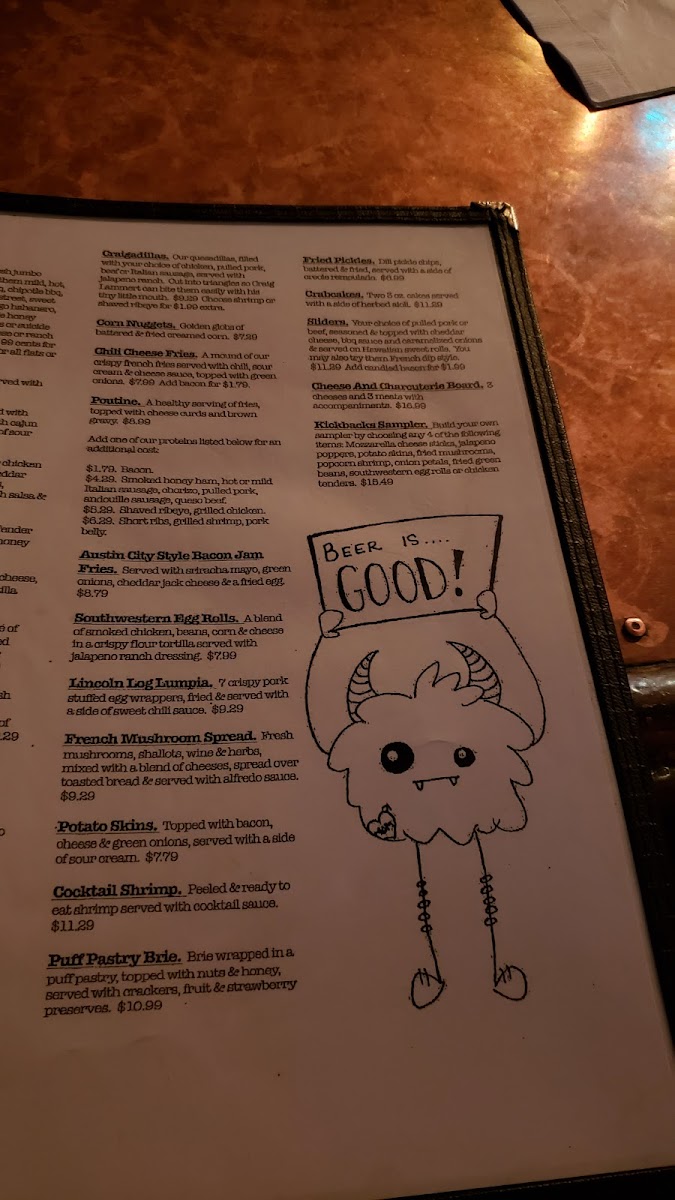 sh jumbo
them mild, hot,
, chipotle bbq,
street, sweet
go habanero,
s honey
s or suicide
se or ranch
.99 cents for
r all flats or
rved with
d with
h cajun
of sour
chicken
ddar
h salsa &
Tender
honey
cheese,
illa
e of
ed
sh
of
.29
Craigadillas. Our quesadillas, filled
with your choice of chicken, pulled pork,
beef or Italian sausage, served with
jalapeno ranch. Cut into triangles so Craig
Lammert can bite them easily with his
tiny little mouth. $9.29 Choose shrimp or
shaved ribeye for $1.99 extra.
Corn Nuggets. Golden globs of
battered & fried creamed corn. $7.29
Chili Cheese Fries. A mound of our
crispy french fries served with chili, sour
cream & cheese sauce, topped with green
onions. $7.99 Add bacon for $1.79.
Poutine. A healthy serving of fries,
topped with cheese curds and brown
gravy. $8.99
Add one of our proteins listed below for an
additional cost:
$1.79. Bacon.
$4.29. Smoked honey ham, hot or mild
Italian sausage, chorizo, pulled pork,
andouille sausage, queso beef.
$5.29. Shaved ribeye, grilled chicken.
$6.29. Short ribs, grilled shrimp, pork
belly.
Austin City Style Bacon Jam
Fries. Served with sriracha mayo, green
onions, cheddar jack cheese & a fried egg.
$8.79
Southwestern Egg Rolls. A blend
of smoked chicken, beans, corn & cheese
in a crispy flour tortilla served with
jalapeno ranch dressing. $7.99
Lincoln Log Lumpia. 7 crispy pork
stuffed egg wrappers, fried & served with
a side of sweet chili sauce. $9.29
French Mushroom Spread. Fresh
mushrooms, shallots, wine & herbs,
mixed with a blend of cheeses, spread over
toasted bread & served with alfredo sauce.
$9.29
Potato Skins. Topped with bacon,
cheese & green onions, served with a side
of sour cream. $7.79
Cocktail Shrimp. Peeled & ready to
eat shrimp served with cocktail sauce.
$11.29
Puff Pastry Brie. Brie wrapped in a
puff pastry, topped with nuts & honey,
served with crackers, fruit & strawberry
preserves. $10.99
Fried Pickles. Dill pickle chips,
battered & fried, served with a side of
creole remoulade. $6.99
Crabcakes. Two 3 oz. cakes served
with a side of herbed aioli. $11.29
Sliders. Your choice of pulled pork or
beef, seasoned & topped with cheddar
cheese, bbq sauce and caramelized onions
& served on Hawaiian sweet rolls. You
may also try them French dip style.
$11.29 Add candied bacon for $1.99
Cheese And Charcuterie Board. 3
cheeses and 3 meats with
accompaniments. $16.99
Kickbacks Sampler. Build your own
sampler by choosing any 4 of the following
items: Mozzarella cheese sticks, jalapeno
poppers, potato skins, fried mushrooms,
popcorn shrimp, onion petals, fried green
beans, southwestern egg rolls or chicken
tenders. $15.49
BEER IS....
GOOD!